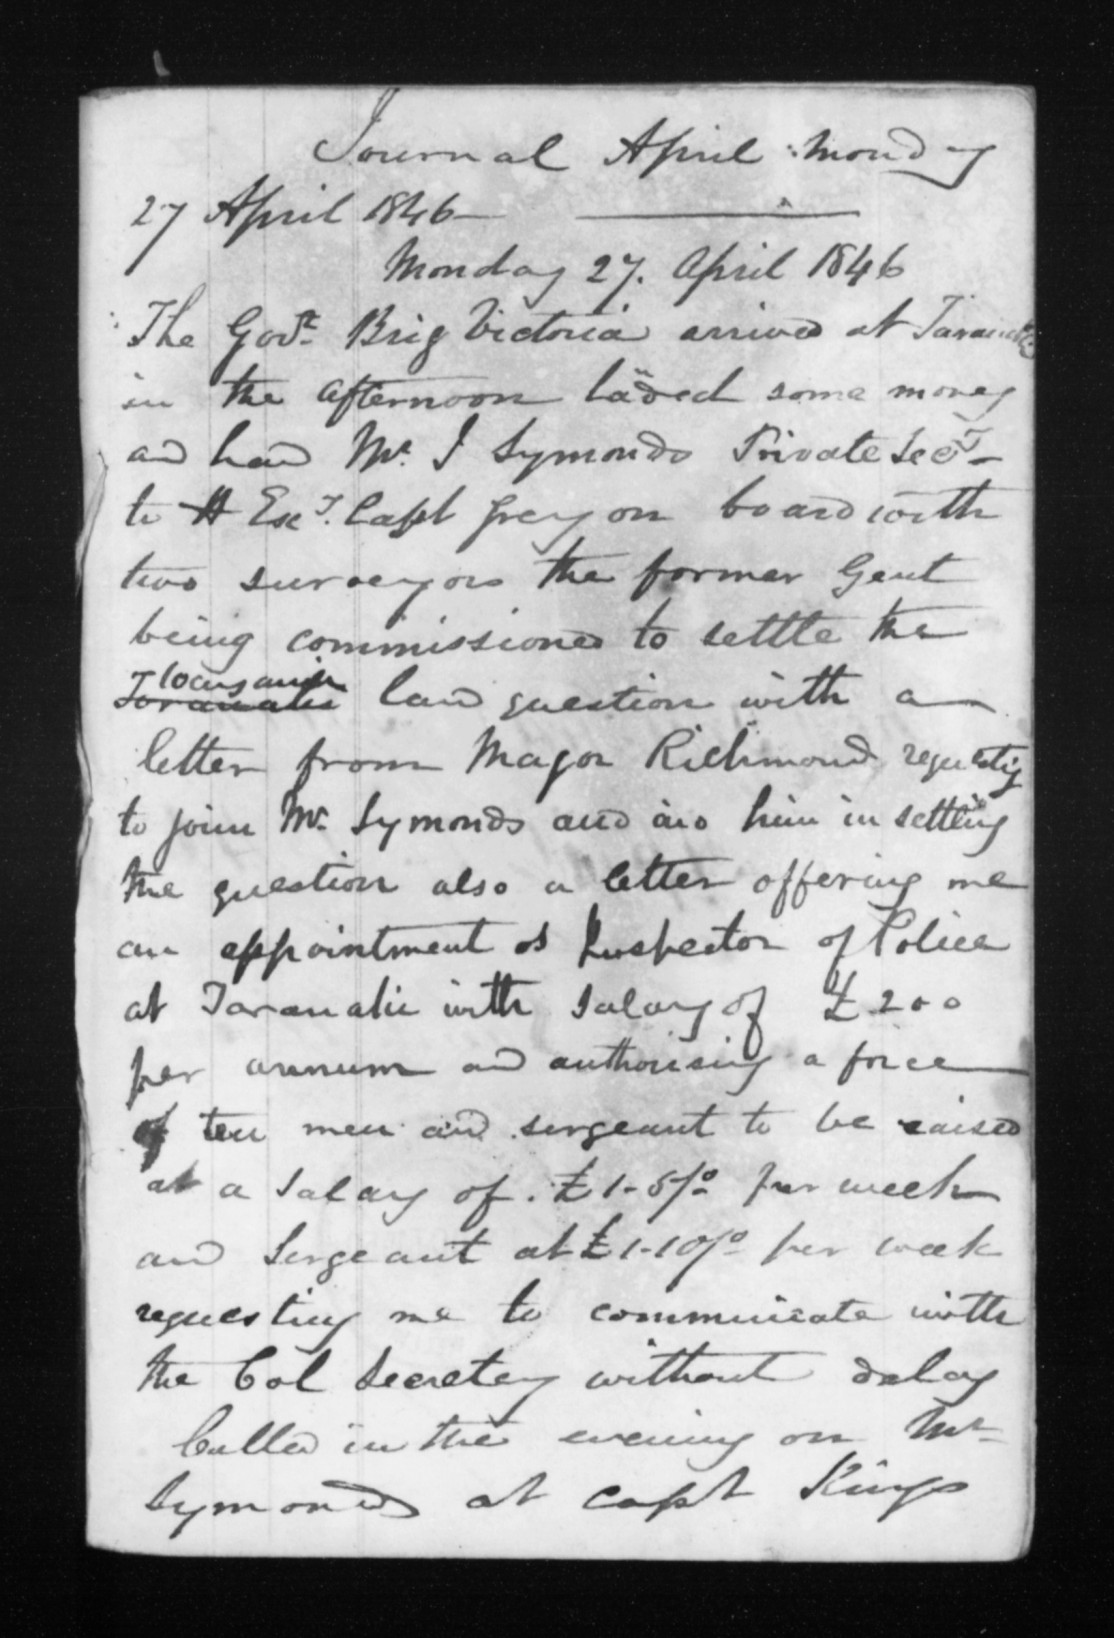 Journal April Monday
27 April 1846
Monday 27. April 1846
The Govt. Brig Victoria arrived at Taranaki
in the afternoon landed some money
and had Mr. J Symonds Private Secy
to H Exy. Capt Grey on board with
two surveyors the former Gent
being commissioned to settle the
Taranaki land question with a
letter from Major Richmond requestig
to join Mr. Symonds and aid him in settling
the question also a letter offering me
an appointment of Inspector of Police
at Taranaki with Salary of £200
per annum and authorising a force
of ten men and sergeant to be raised
at a Salary of £1-5/0 per week
and Sergeant at £1-10/0 per week
requesting me to communicate with
the Col Secretey without delay
Called in the evening on Mr
Symonds at Capt Kings